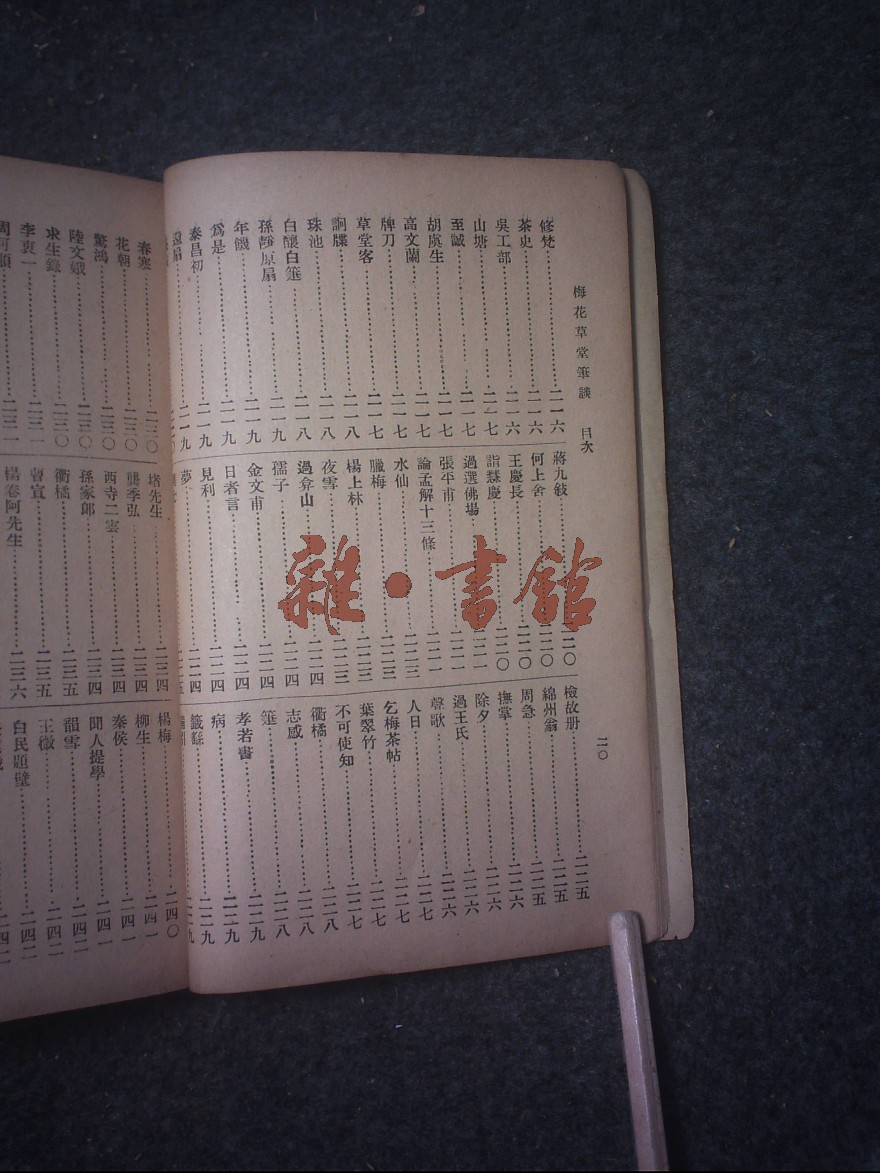 梅花草堂筆談 目次 二〇
修梵……二一六
茶史……二一六
吳工部……二一六
山塘……二一七
至誠……二一七
胡虞生……二一七
高文蘭……二一七
牌刀……二一七
草堂客……二一七
詗牒……二一八
珠池……二一八
白釀白箑……二一八
孫靜原扇……二一九
年饑……二一九
爲是……二一九
泰昌初……二一九
還扇……二一九
蔣九敍……二二〇
何上舍……二二〇
王慶長……二二〇
詣慧慶……二二〇
過選佛場……二二一
張平甫……二二一
論孟解十三條……二二一
水仙……二二三
臘梅……二二三
楊上林……二二三
夜雪……二二三
過弇山……二二四
孺子……二二四
金文甫……二二四
日者言……二二四
見利……二二四
夢……二二五
檢故册……二二五
綿州翁……二二五
周急……二二五
撫掌……二二六
除夕……二二六
過王氏……二二六
聲歌……二二六
人日……二二七
乞梅茶帖……二二七
葉翠竹……二二七
不可使知……二二七
衢橘……二二八
志感……二二八
箑……二二八
孝若書……二二九
病……二二九
籤繇……二二九
春寒……二三〇
花朝……二三〇
驚鴻……二三〇
陸文娥……二三〇
求生錄……二三〇
李衷一……二三一
周可順……二三一
塔先生……二三四
龔季弘……二三四
西寺二雲……二三四
孫家郎……二三四
衢橘……二三五
曹宣……二三五
楊卷阿先生……二三六
楊梅……二四〇
柳生……二四一
秦侯……二四一
聞人提學……二四一
韻雪……二四二
王徵……二四二
白民題壁……二四二
雜·書館